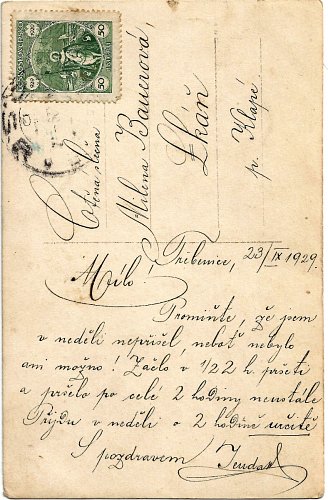 50 50
Ctěná slečna
Milena Baurová,
Lkáň
p. Klapé
Třebenice, 23/IX 1929.
Mílo!
Promiňte, že jsem
v neděli nepřišel, neboť nebylo
ani možno! Začlo v 1/2 2 h. pršeti
a pršelo po celé 2 hodiny neustále
Přijdu v neděli o 2 hodině určitě
S pozdravem